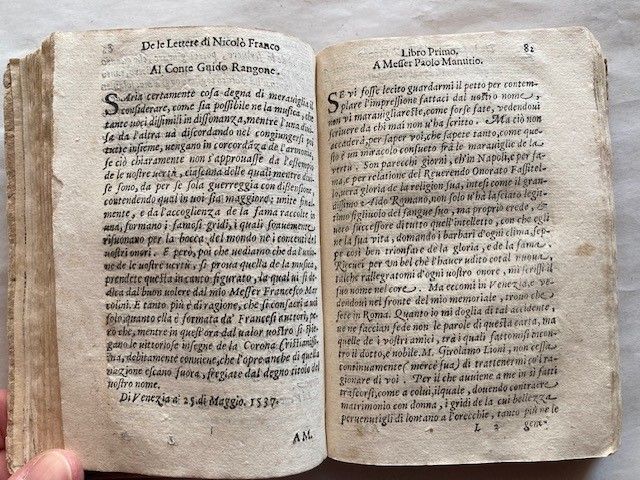 De le Lettere di Nicolò Franco
Al Conte Guido Rangone.
SAria certamente cosa degna di merauiglia il
considerare, come sia possibile ne la musica, che
tante uoci dissimili in dissonanza, mentre l'una diui-
sa da l'altra ua discordando nel congiungersi poi
tutte insieme, uengano in concordāza de l'armonia,
se ciò chiaramente non s'approuasse da l'essempio
de le uostre uertù, ciascuna delle quali mentre diui-
se sono, da per se sola guerreggia con distensione,
contendendo qual in uoi sia maggiore; unite final-
mente, e da l'accoglienza de la fama raccolte in
una, formano i famosi gridi, i quali soauemente
risuonano per la bocca del mondo ne i concenti dei
uostri onori. E però, poi che uediamo che da l'unio-
ne de le uostre uertù, si proua quella de la musica,
prendete questa in canto figurato, la qual ui si de-
dica dal buon uolere dal mio Messer Francesco Mar
colini. E tanto più è di ragione, che si consacri a uoi
solo, quanto ella è formata da' Francesi auttori, pe-
rò che, mentre in quest'ora dal ualor uostro si spie-
gano le uittoriose insegne de la Corona Christianis-
sima, debitamente conuiene, che l'opre anche di quella
nazione escano fuora, fregiate dal degno titolo del
uostro nome.
Di Venezia a 25. di Maggio. 1537.
AM.
Libro Primo. 82
A Messer Paolo Manutio.
SE vi fosse lecito guardarmi il petto per contem-
plare l'impressione fattaci dal uostro nome,
non vi marauigliareste, come forse fate, vedendoui
scriuere da chi mai non u'ha scritto. Ma ciò non
accaderà, per saper voi, che sapete tanto, come que-
sto è un miracolo consueto frà le marauiglie de la
vertù. Son parecchi giorni, ch'in Napoli, e per fa-
ma, e per relatione del Reuerendo Onorato Fassitel-
lo, uera gloria de la religion sua, intesi come il gran-
dissimo e Aldo Romano, non solo u'ha lasciato legit-
timo figliuolo del sangue suo, ma proprio erede, e
uero successore di tutto quell'intelletto, con che egli
ne la sua vita, domando i barbari d'ogni clima, sep-
pe così ben trionfare de la gloria, e de la fama.
Riceuei per un bel chè l'hauer udito cotal nuoua,
talche rallegratomi d'ogni uostro onore, mi scrissi il
suo nome nel core. Ma eccomi in Venezia e ve-
dendoui nel fronte del mio memoriale, trouo che
sete in Roma. Quanto io mi doglia di tal accidente,
ue ne faccian fede non le parole di questa carta, ma
quelle de i vostri amici, tra i quali fattomisi incon-
tro il dotto, e nobile. M. Girolamo Lioni, non cessa
continuamente (mercè sua) di trattenermi co'l ra-
gionare di voi. Per il che auuiene a me in sì fatti
trascorsi, come a colui, ilquale, douendo contraere
matrimonio con donna, i gridi de la cui bellezza
peruenutigli di lontano a l'orecchie, tanto più ne le
L 2 gene